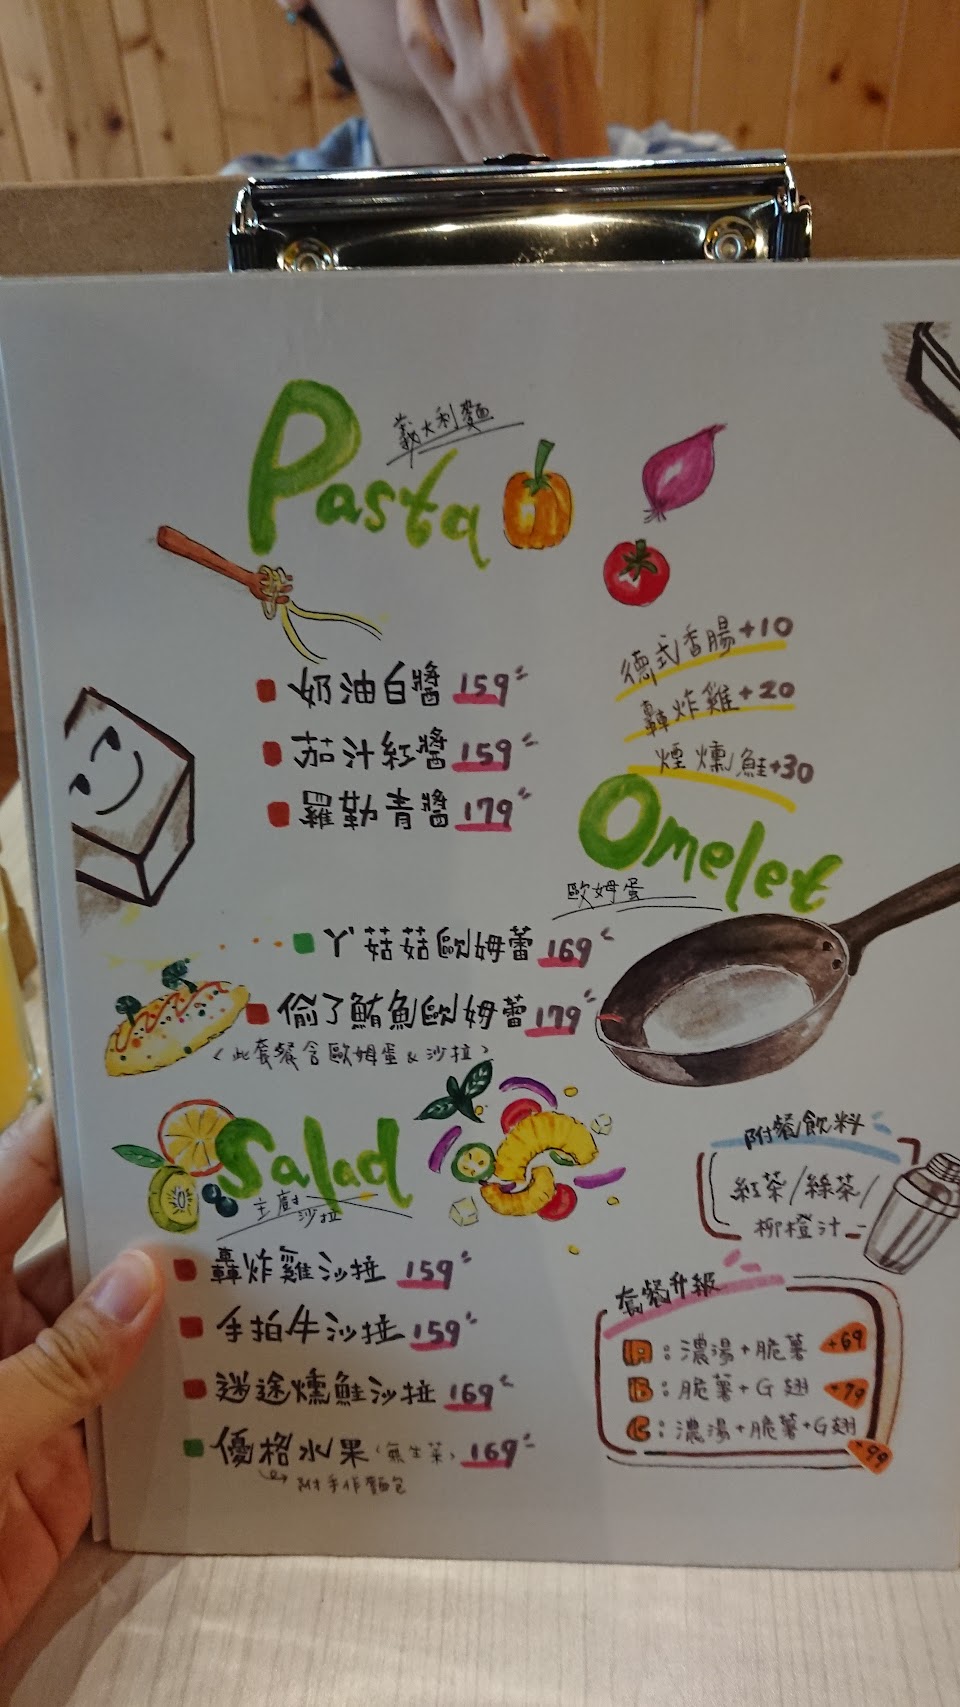 Pasta
義大利麵
奶油白醬 159
茄汁紅醬 159
羅勒青醬 179
德式香腸+10
轟炸雞+20
煙燻鮭+30
Omelet
歐姆蛋
ㄚ菇菇歐姆蕾 169
偷了鮪魚歐姆蕾 179
(此套餐含歐姆蛋&沙拉)
Salad
主廚沙拉
轟炸雞沙拉 159
手拍牛沙拉 159
迷途燻鮭沙拉 169
優格水果(無生菜) 169
附手作麵包
附餐飲料
紅茶/綠茶/
柳橙汁
套餐升級
A:濃湯+脆薯 +69
B:脆薯+G翅 +79
C:濃湯+脆薯+G翅
+99